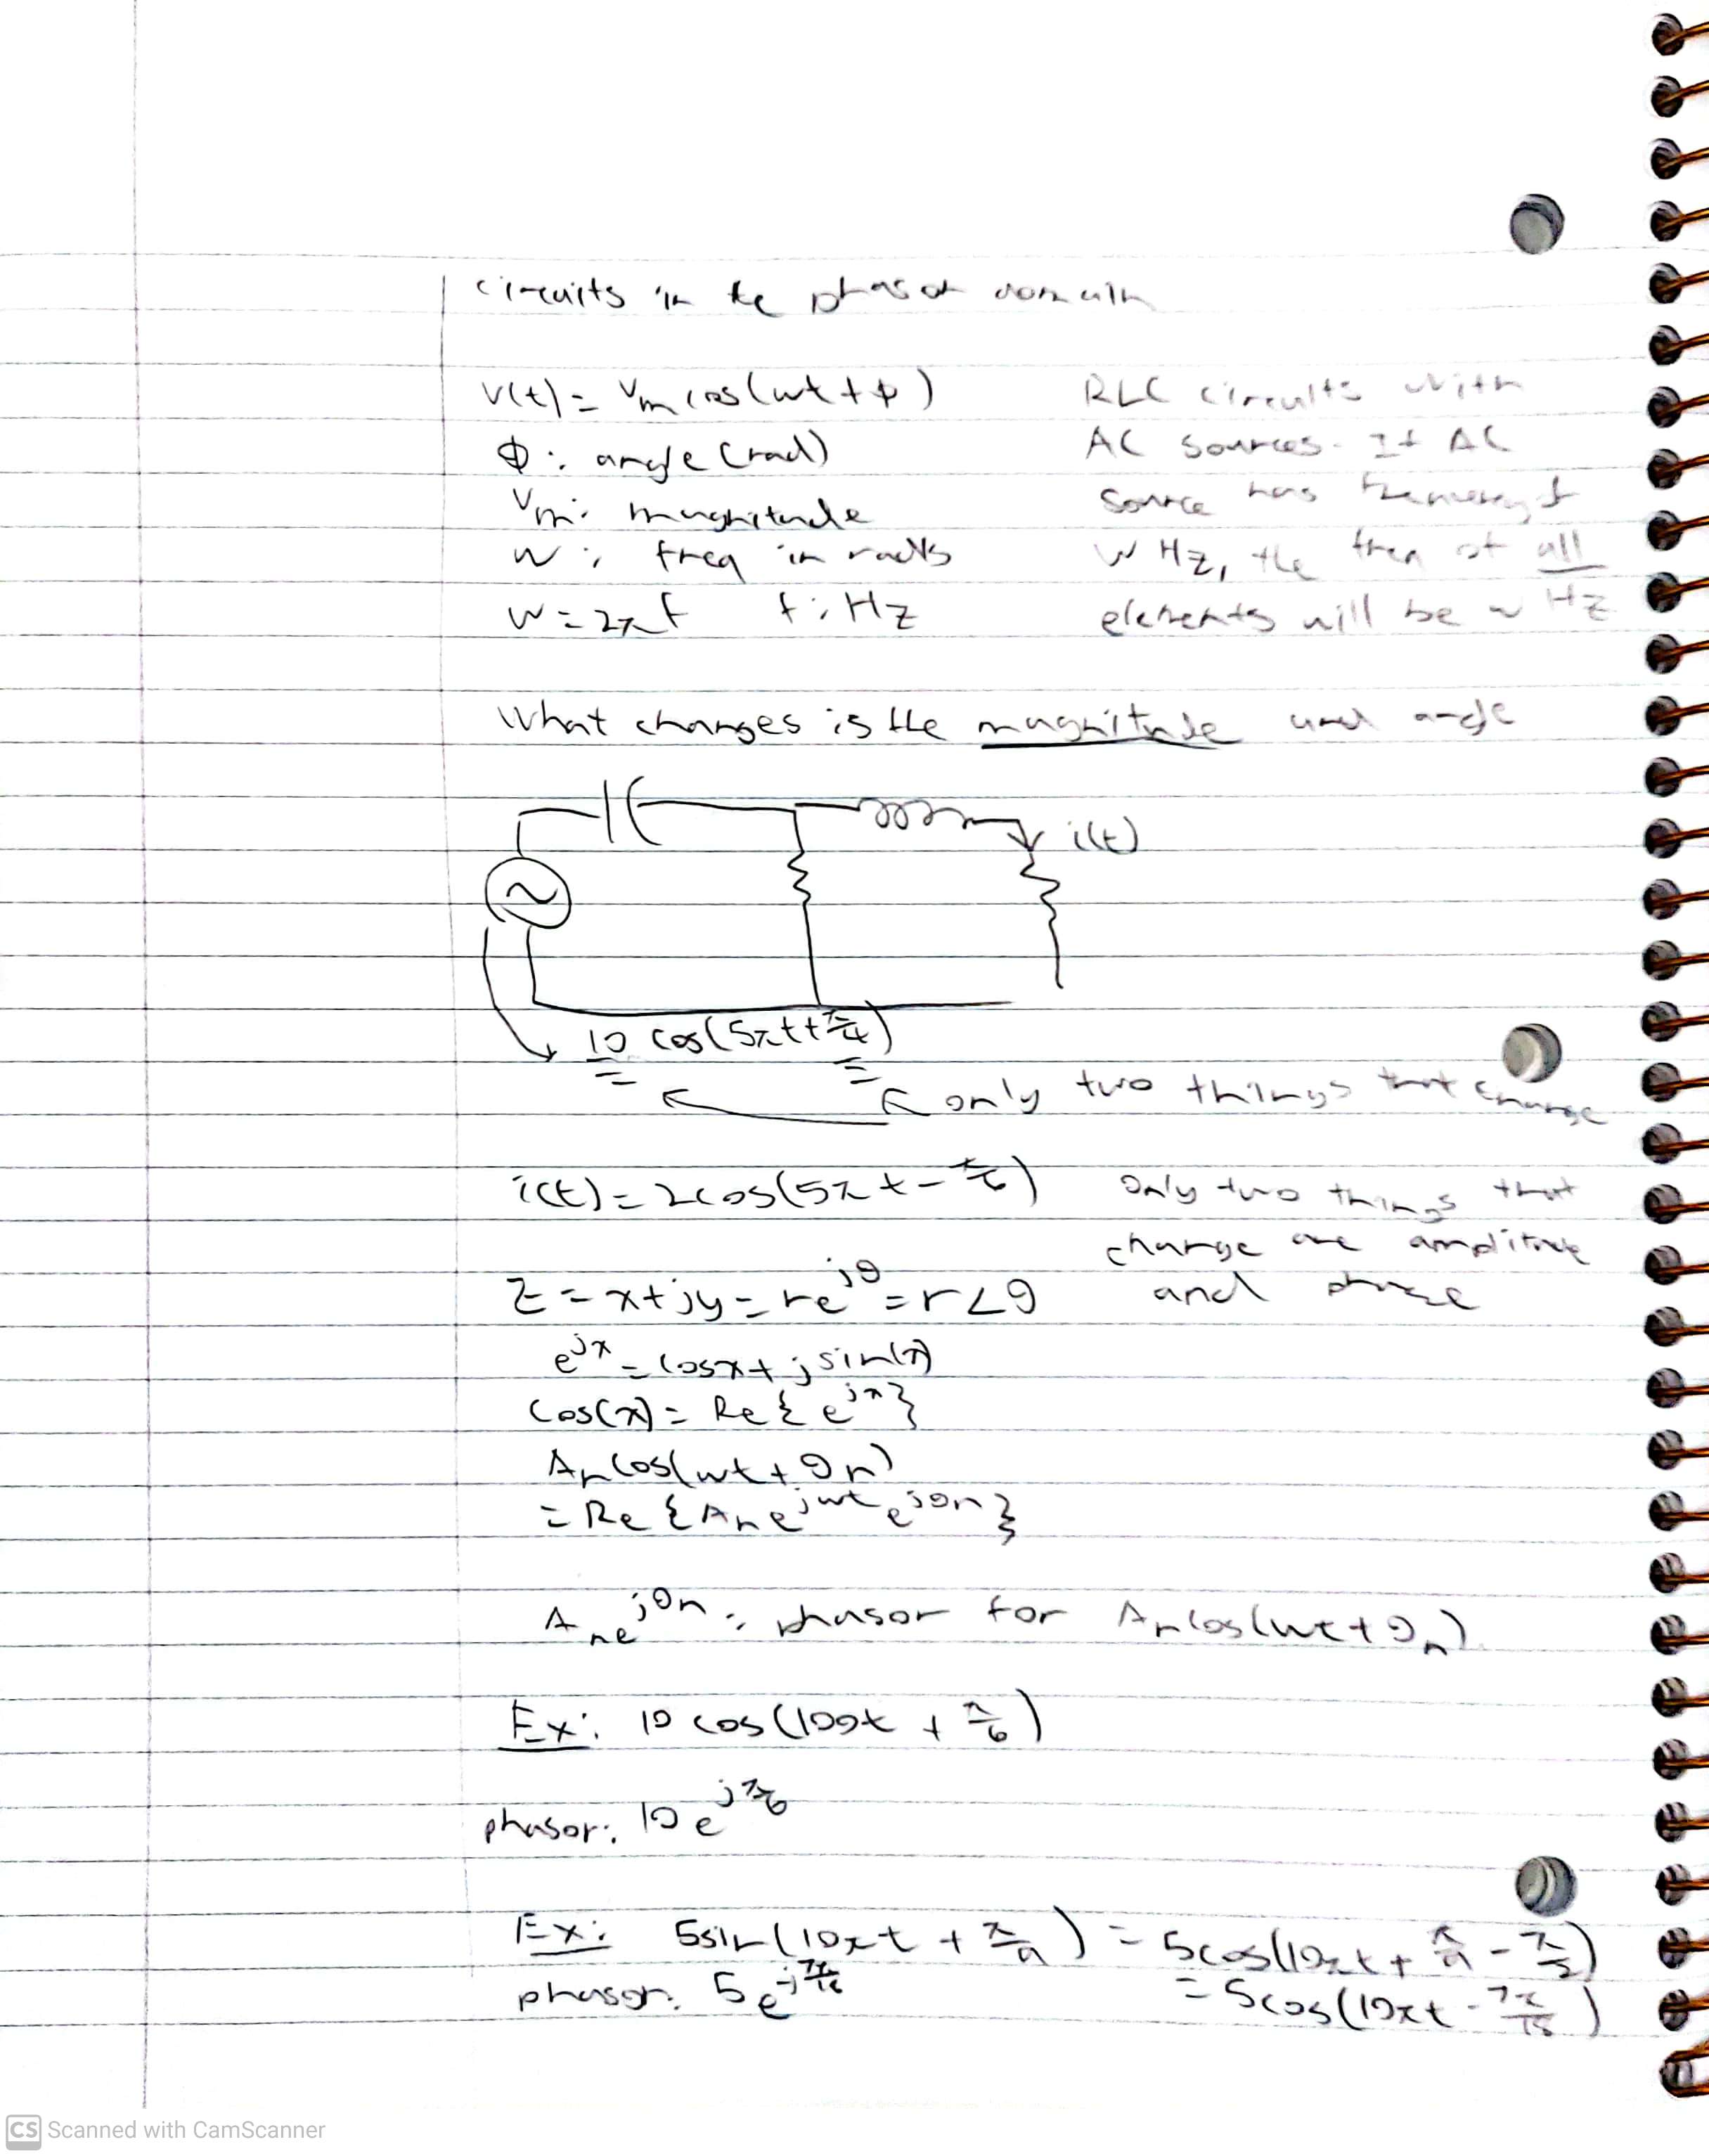 circuits in the phasor domain
v(t) = Vm cos(wt + ϕ)
ϕ: angle (rad)
Vm: magnitude
w: freq in rad/s
w = 2πf f: Hz
RLC circuits with
AC sources. If AC
source has frequency of
w Hz, the freq of all
elements will be w Hz
What changes is the magnitude and angle
i(t)
10 cos(5πt + π/4)
only two things that change
i(t) = 2cos(5πt - π/6)
only two things that
change are amplitude
and phase
z = x + jy = re^jθ = r∠θ
e^jx = cosx + jsin(x)
cos(x) = Re{e^jx}
An cos(wt + θn)
= Re{An e^jwt e^jθn}
An e^jθn: phasor for An cos(wt + θn)
Ex: 10 cos(100t + π/6)
phasor: 10 e^jπ/6
Ex: 5sin(10πt + π/9) = 5cos(10πt + π/9 - π/2)
= 5cos(10πt - 7π/18)
phasor: 5 e^-j7π/18
CS Scanned with CamScanner